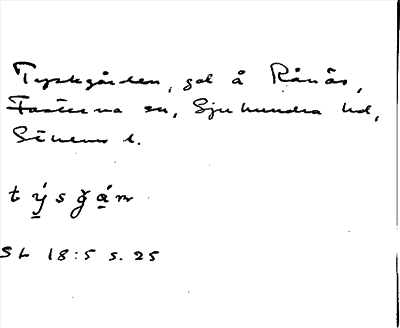 Tyskgården, gd å Rånäs,
Fasterna sn, Sjuhundra hd,
Sthlms l.
t ý s ğ á̱ ṇ
SL 18:5 s. 25